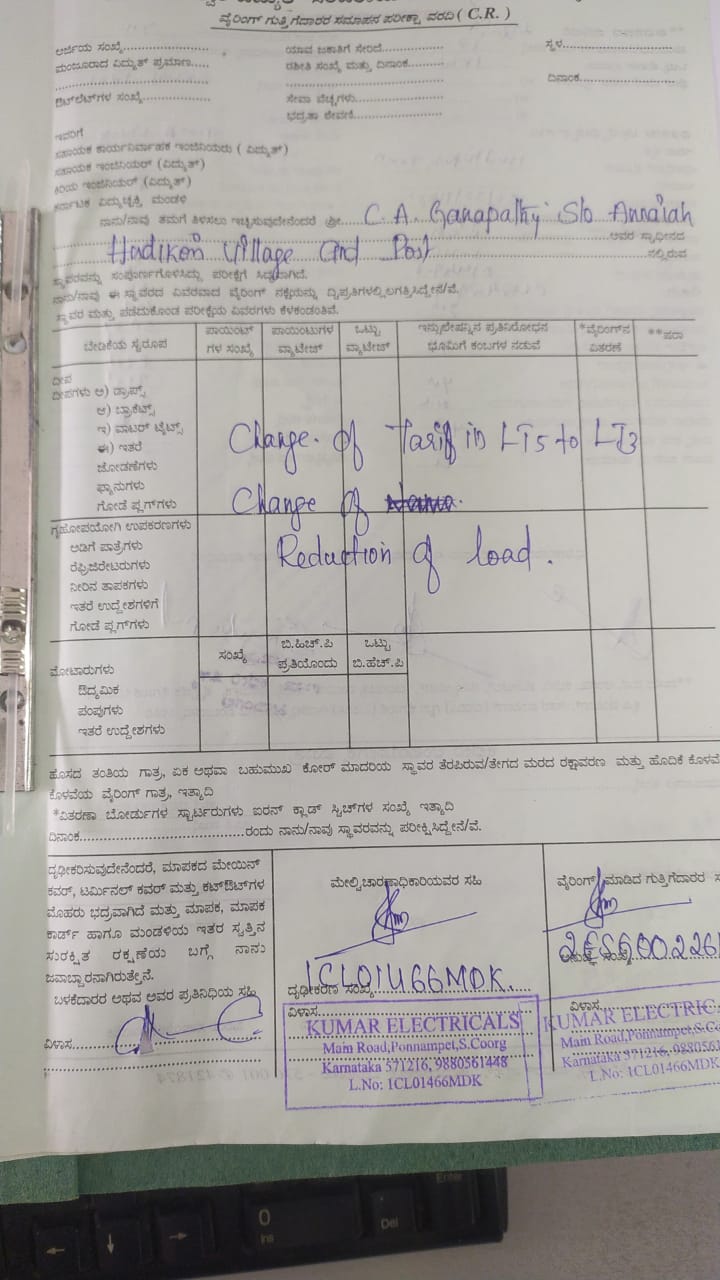 ವೈರಿಂಗ್ ಗುತ್ತಿಗೆದಾರರ ಸಮಾಪನ ಪರೀಕ್ಷಾ ವರದಿ ( C.R. )
ಅರ್ಜಿಯ ಸಂಖ್ಯೆ........................ ಯಾವ ಜಕಾತಿಗೆ ಸೇರಿದೆ........................ ಸ್ಥಳ............................
ಮಂಜೂರಾದ ವಿದ್ಯುತ್ ಪ್ರಮಾಣ..... ರಶೀತಿ ಸಂಖ್ಯೆ ಮತ್ತು ದಿನಾಂಕ................
ದಿನಾಂಕ............................
ಔಟ್‌ಲೆಟ್‌ಗಳ ಸಂಖ್ಯೆ.................... ಸೇವಾ ವೆಚ್ಚಗಳು........................
ಭದ್ರತಾ ಠೇವಣಿ........................
ಇವರಿಗೆ
ಸಹಾಯಕ ಕಾರ್ಯನಿರ್ವಾಹಕ ಇಂಜಿನಿಯರು ( ವಿದ್ಯುತ್ )
ಸಹಾಯಕ ಇಂಜಿನಿಯರ್ (ವಿದ್ಯುತ್)
ಕಿರಿಯ ಇಂಜಿನಿಯರ್ (ವಿದ್ಯುತ್)
ಕರ್ನಾಟಕ ವಿದ್ಯುಚ್ಛಕ್ತಿ ಮಂಡಳಿ
ನಾನು/ನಾವು ತಮಗೆ ತಿಳಿಸಲು ಇಚ್ಛಿಸುವುದೇನೆಂದರೆ ಶ್ರೀ..... C. A. Ganapathy S/o Annaiah
Hudikeri Village and Post ಅವರ ಸ್ವಾಧೀನದ
ನಲ್ಲಿರುವ
ಸ್ಥಾವರವನ್ನು ಸಂಪೂರ್ಣಗೊಳಿಸಿದ್ದು ಪರೀಕ್ಷೆಗೆ ಸಿದ್ಧವಾಗಿದೆ.
ನಾನು/ನಾವು ಈ ಸ್ಥಾವರದ ವಿವರವಾದ ವೈರಿಂಗ್ ನಕ್ಷೆಯನ್ನು ದ್ವಿಪ್ರತಿಗಳಲ್ಲಿ ಲಗತ್ತಿಸಿದ್ದೇನೆ/ವೆ.
ಸ್ಥಾವರ ಮತ್ತು ಪಡೆದುಕೊಂಡ ಪರೀಕ್ಷೆಯ ವಿವರಗಳು ಕೆಳಕಂಡಂತಿವೆ.
ಬೇಡಿಕೆಯ ಸ್ವರೂಪ ಪಾಯಿಂಟ್ ಗಳ ಸಂಖ್ಯೆ ಪಾಯಿಂಟುಗಳ ವ್ಯಾಟೇಜ್ ಒಟ್ಟು ವ್ಯಾಟೇಜ್ ಇನ್ಸುಲೇಷನ್ನಿನ ಪ್ರತಿನಿರೋಧನ ಭೂಮಿಗೆ ಕಂಬಗಳ ನಡುವೆ *ವೈರಿಂಗ್‌ನ ವಿತರಣೆ **ಷರಾ
ದೀಪ
ದೀಪಗಳು ಅ) ಡ್ರಾಪ್ಸ್
ಆ) ಬ್ರಾಕೆಟ್ಸ್
ಇ) ವಾಟರ್ ಟೈಟ್ಸ್
ಈ) ಇತರೆ
Change of Tarif in LT5 to LT3
ಜೋಡಣೆಗಳು
ಫ್ಯಾನುಗಳು
ಗೋಡೆ ಪ್ಲಗ್‌ಗಳು Change of Name.
ಗೃಹೋಪಯೋಗಿ ಉಪಕರಣಗಳು
ಅಡಿಗೆ ಪಾತ್ರೆಗಳು Reduction of load.
ರೆಫ್ರಿಜಿರೇಟರುಗಳು
ನೀರಿನ ತಾಪಕಗಳು
ಇತರೆ ಉದ್ದೇಶಗಳಿಗೆ
ಗೋಡೆ ಪ್ಲಗ್‌ಗಳು
ಸಂಖ್ಯೆ ಬಿ.ಹೆಚ್.ಪಿ ಪ್ರತಿಯೊಂದು ಒಟ್ಟು ಬಿ.ಹೆಚ್.ಪಿ
ಮೋಟಾರುಗಳು
ಔದ್ಯಮಿಕ
ಪಂಪುಗಳು
ಇತರೆ ಉದ್ದೇಶಗಳು
ಹೊಸದ ತಂತಿಯ ಗಾತ್ರ, ಏಕ ಅಥವಾ ಬಹುಮುಖ ಕೋರ್ ಮಾದರಿಯ ಸ್ಥಾವರ ತೆರಪಿರುವ/ತೇಗದ ಮರದ ರಕ್ಷಾವರಣ ಮತ್ತು ಹೊದಿಕೆ ಕೊಳವೆ
ಕೊಳವೆಯ ವೈರಿಂಗ್ ಗಾತ್ರ, ಇತ್ಯಾದಿ
*ವಿತರಣಾ ಬೋರ್ಡುಗಳ ಸ್ಟಾರ್ಟರುಗಳು ಐರನ್ ಕ್ಲಾಡ್ ಸ್ವಿಚ್‌ಗಳ ಸಂಖ್ಯೆ ಇತ್ಯಾದಿ
ದಿನಾಂಕ........................................ರಂದು ನಾನು/ನಾವು ಸ್ಥಾವರವನ್ನು ಪರೀಕ್ಷಿಸಿದ್ದೇನೆ/ವೆ.
ದೃಢೀಕರಿಸುವುದೇನೆಂದರೆ, ಮಾಪಕದ ಮೇಯಿನ್
ಕವರ್, ಟರ್ಮಿನಲ್ ಕವರ್ ಮತ್ತು ಕಟ್‌ಔಟ್‌ಗಳ
ಮೊಹರು ಭದ್ರವಾಗಿದೆ ಮತ್ತು ಮಾಪಕ, ಮಾಪಕ
ಕಾರ್ಡ್ ಹಾಗೂ ಮಂಡಳಿಯ ಇತರ ಸ್ವತ್ತಿನ
ಸುರಕ್ಷಿತ ರಕ್ಷಣೆಯ ಬಗ್ಗೆ ನಾನು
ಜವಾಬ್ದಾರನಾಗಿರುತ್ತೇನೆ.
ಬಳಕೆದಾರರ ಅಥವಾ ಅವರ ಪ್ರತಿನಿಧಿಯ ಸಹಿ
ವಿಳಾಸ
ಮೇಲ್ವಿಚಾರಣಾಧಿಕಾರಿಯವರ ಸಹಿ
1CL01466MDK.
ದೃಢೀಕರಣ ಸಂಖ್ಯೆ
ವಿಳಾಸ
KUMAR ELECTRICALS
Main Road,Ponnampet,S.Coorg
Karnataka 571216, 9880561448
L.No: 1CL01466MDK
ವೈರಿಂಗ್ ಮಾಡಿದ ಗುತ್ತಿಗೆದಾರರ ಸ
ವಿಳಾಸ
KUMAR ELECTRICA
Main Road,Ponnampet,S.Co
Karnataka 571216, 9880561
L.No: 1CL01466MDK
Enter
0
Ins
Del